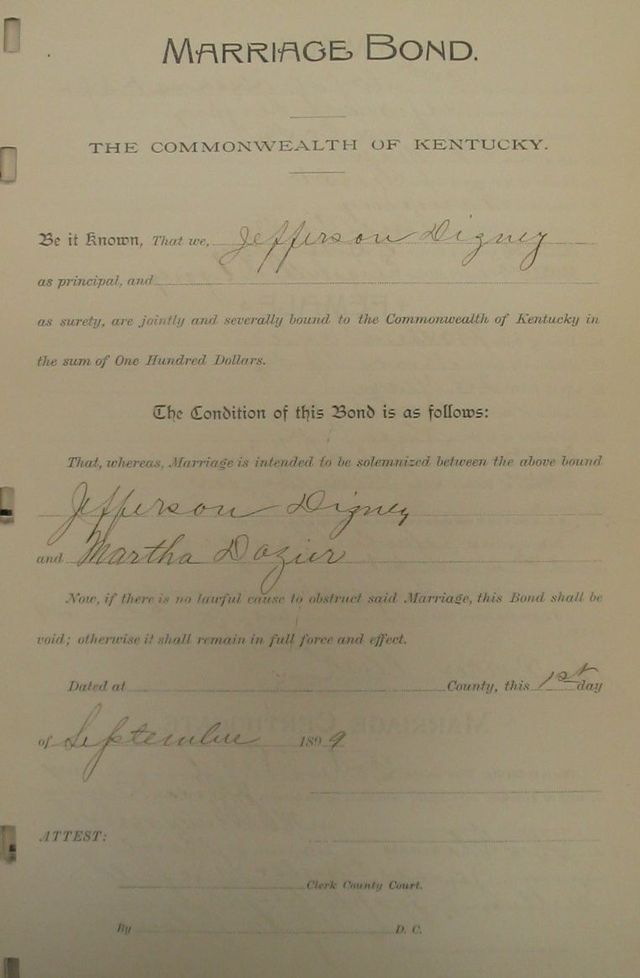 MARRIAGE BOND.
THE COMMONWEALTH OF KENTUCKY.
Be it Known, That we, Jefferson Digney
as principal, and
as surety, are jointly and severally bound to the Commonwealth of Kentucky in
the sum of One Hundred Dollars.
The Condition of this Bond is as follows:
That, whereas, Marriage is intended to be solemnized between the above bound
Jefferson Digney
and Martha Dozier
Now, if there is no lawful cause to obstruct said Marriage, this Bond shall be
void; otherwise it shall remain in full force and effect.
Dated at County, this 1st day
of September 1899
ATTEST:
Clerk County Court.
By D. C.